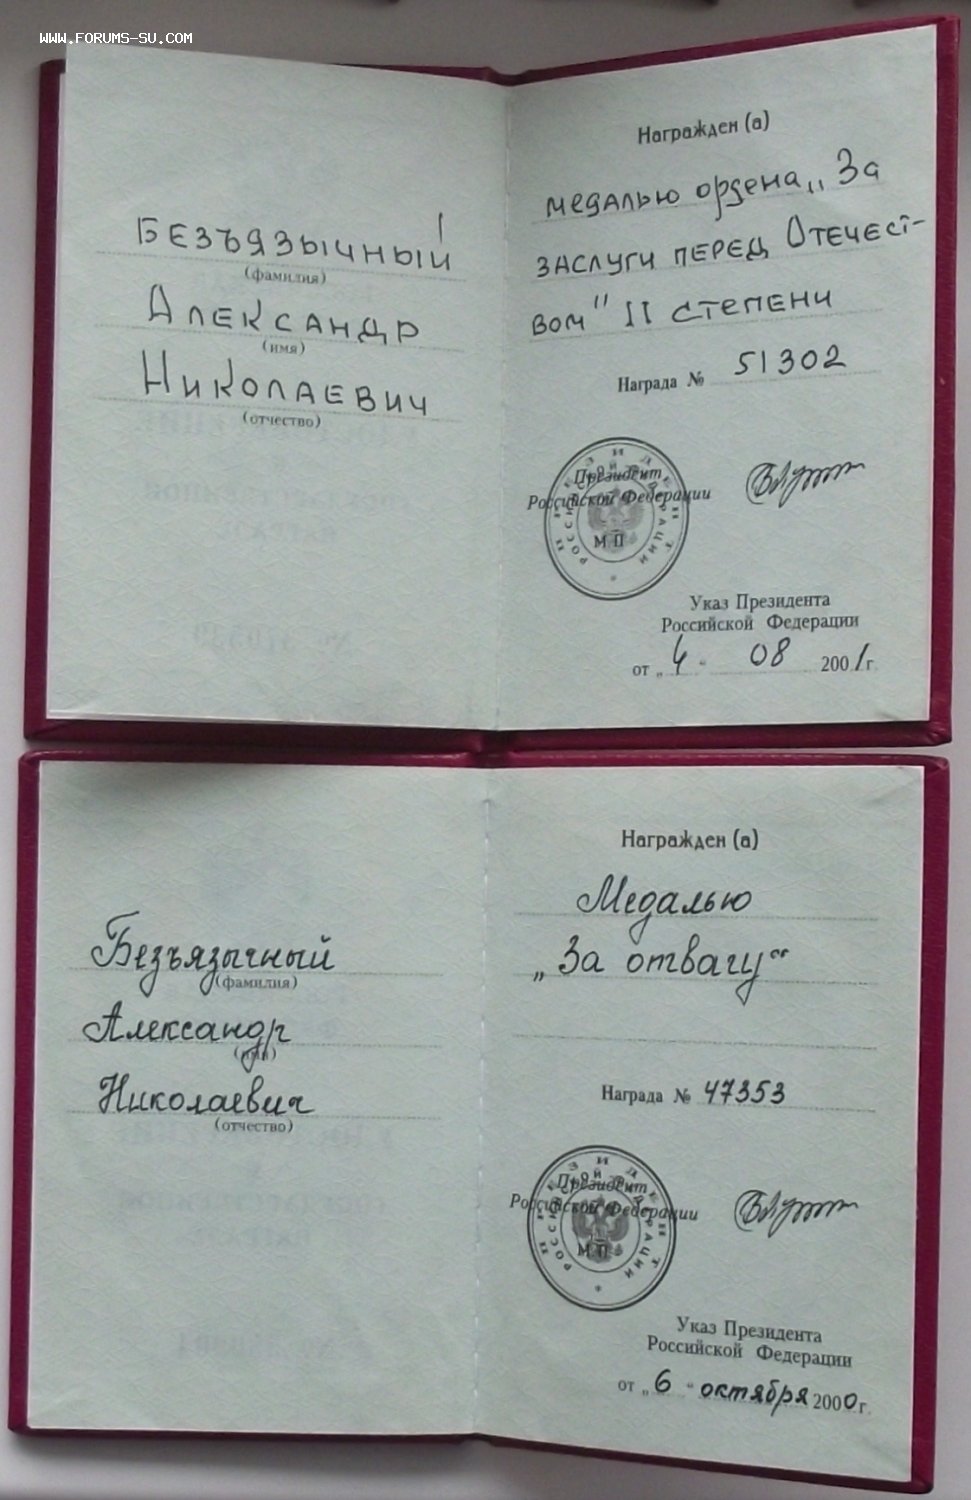 WWW.FORUMS-SU.COM
Безъязычный
(фамилия)
Александр
(имя)
Николаевич
(отчество)
Награжден (а)
медалью ордена „За
заслуги перед Отечест-
вом" II степени
Награда № 51302
Президент
Российской Федерации
М.П
Указ Президента
Российской Федерации
от „4" 08 2001г.
Безъязычный
(фамилия)
Александр
(имя)
Николаевич
(отчество)
Награжден (а)
Медалью
„За отвагу"
Награда № 47353
Президент
Российской Федерации
М.П.
Указ Президента
Российской Федерации
от „6" октября 2000г.